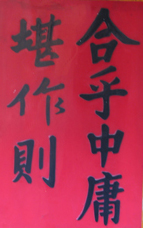 合乎中庸
堪作則